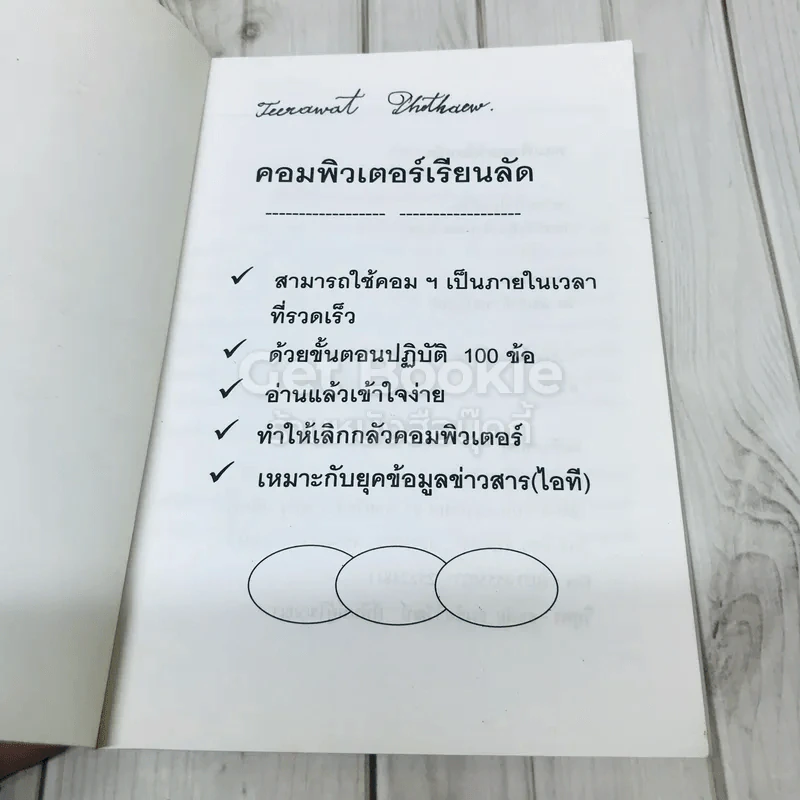 Teerawat Phothaew.
คอมพิวเตอร์เรียนลัด
------------------ ------------------
✓ สามารถใช้คอม ฯ เป็นภายในเวลา
ที่รวดเร็ว
✓ ด้วยขั้นตอนปฏิบัติ 100 ข้อ
✓ อ่านแล้วเข้าใจง่าย
✓ ทำให้เลิกกลัวคอมพิวเตอร์
✓ เหมาะกับยุคข้อมูลข่าวสาร(ไอที)
Get Bookie
ร้านหนังสือบุ๊คกี้